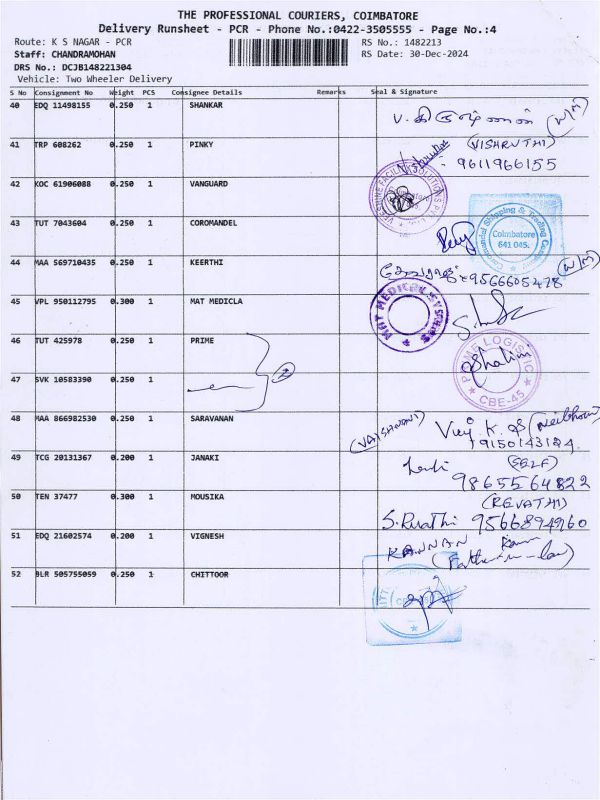 THE PROFESSIONAL COURIERS, COIMBATORE
Delivery Runsheet - PCR - Phone No.:0422-3505555 - Page No.:4
Route: K S NAGAR - PCR RS No.: 1482213
Staff: CHANDRAMOHAN RS Date: 30-Dec-2024
DRS No.: DCJB148221304
Vehicle: Two Wheeler Delivery
S No Consignment No Weight PCS Consignee Details Remarks Seal & Signature
40 EDQ 11498155 0.250 1 SHANKAR
41 TRP 608262 0.250 1 PINKY (VISHRUTHI)
9611966155
42 KOC 61906088 0.250 1 VANGUARD
43 TUT 7043604 0.250 1 COROMANDEL Coromandel Shipping & Trading Company
Coimbatore
641 045.
44 MAA 569710435 0.250 1 KEERTHI 9566605478
45 VPL 950112795 0.300 1 MAT MEDICLA MAT MEDICAL SYSTEMS
46 TUT 425978 0.250 1 PRIME PRIME LOGISTIC
CBE-45
47 SVK 10583390 0.250 1
48 MAA 866982530 0.250 1 SARAVANAN (VAISHNAVI)
49 TCG 20131367 0.200 1 JANAKI (SELF)
9865564822
50 TEN 37477 0.300 1 MOUSIKA (REVATHI)
9566894960
51 EDQ 21602574 0.200 1 VIGNESH KANNAN
52 BLR 505755059 0.250 1 CHITTOOR